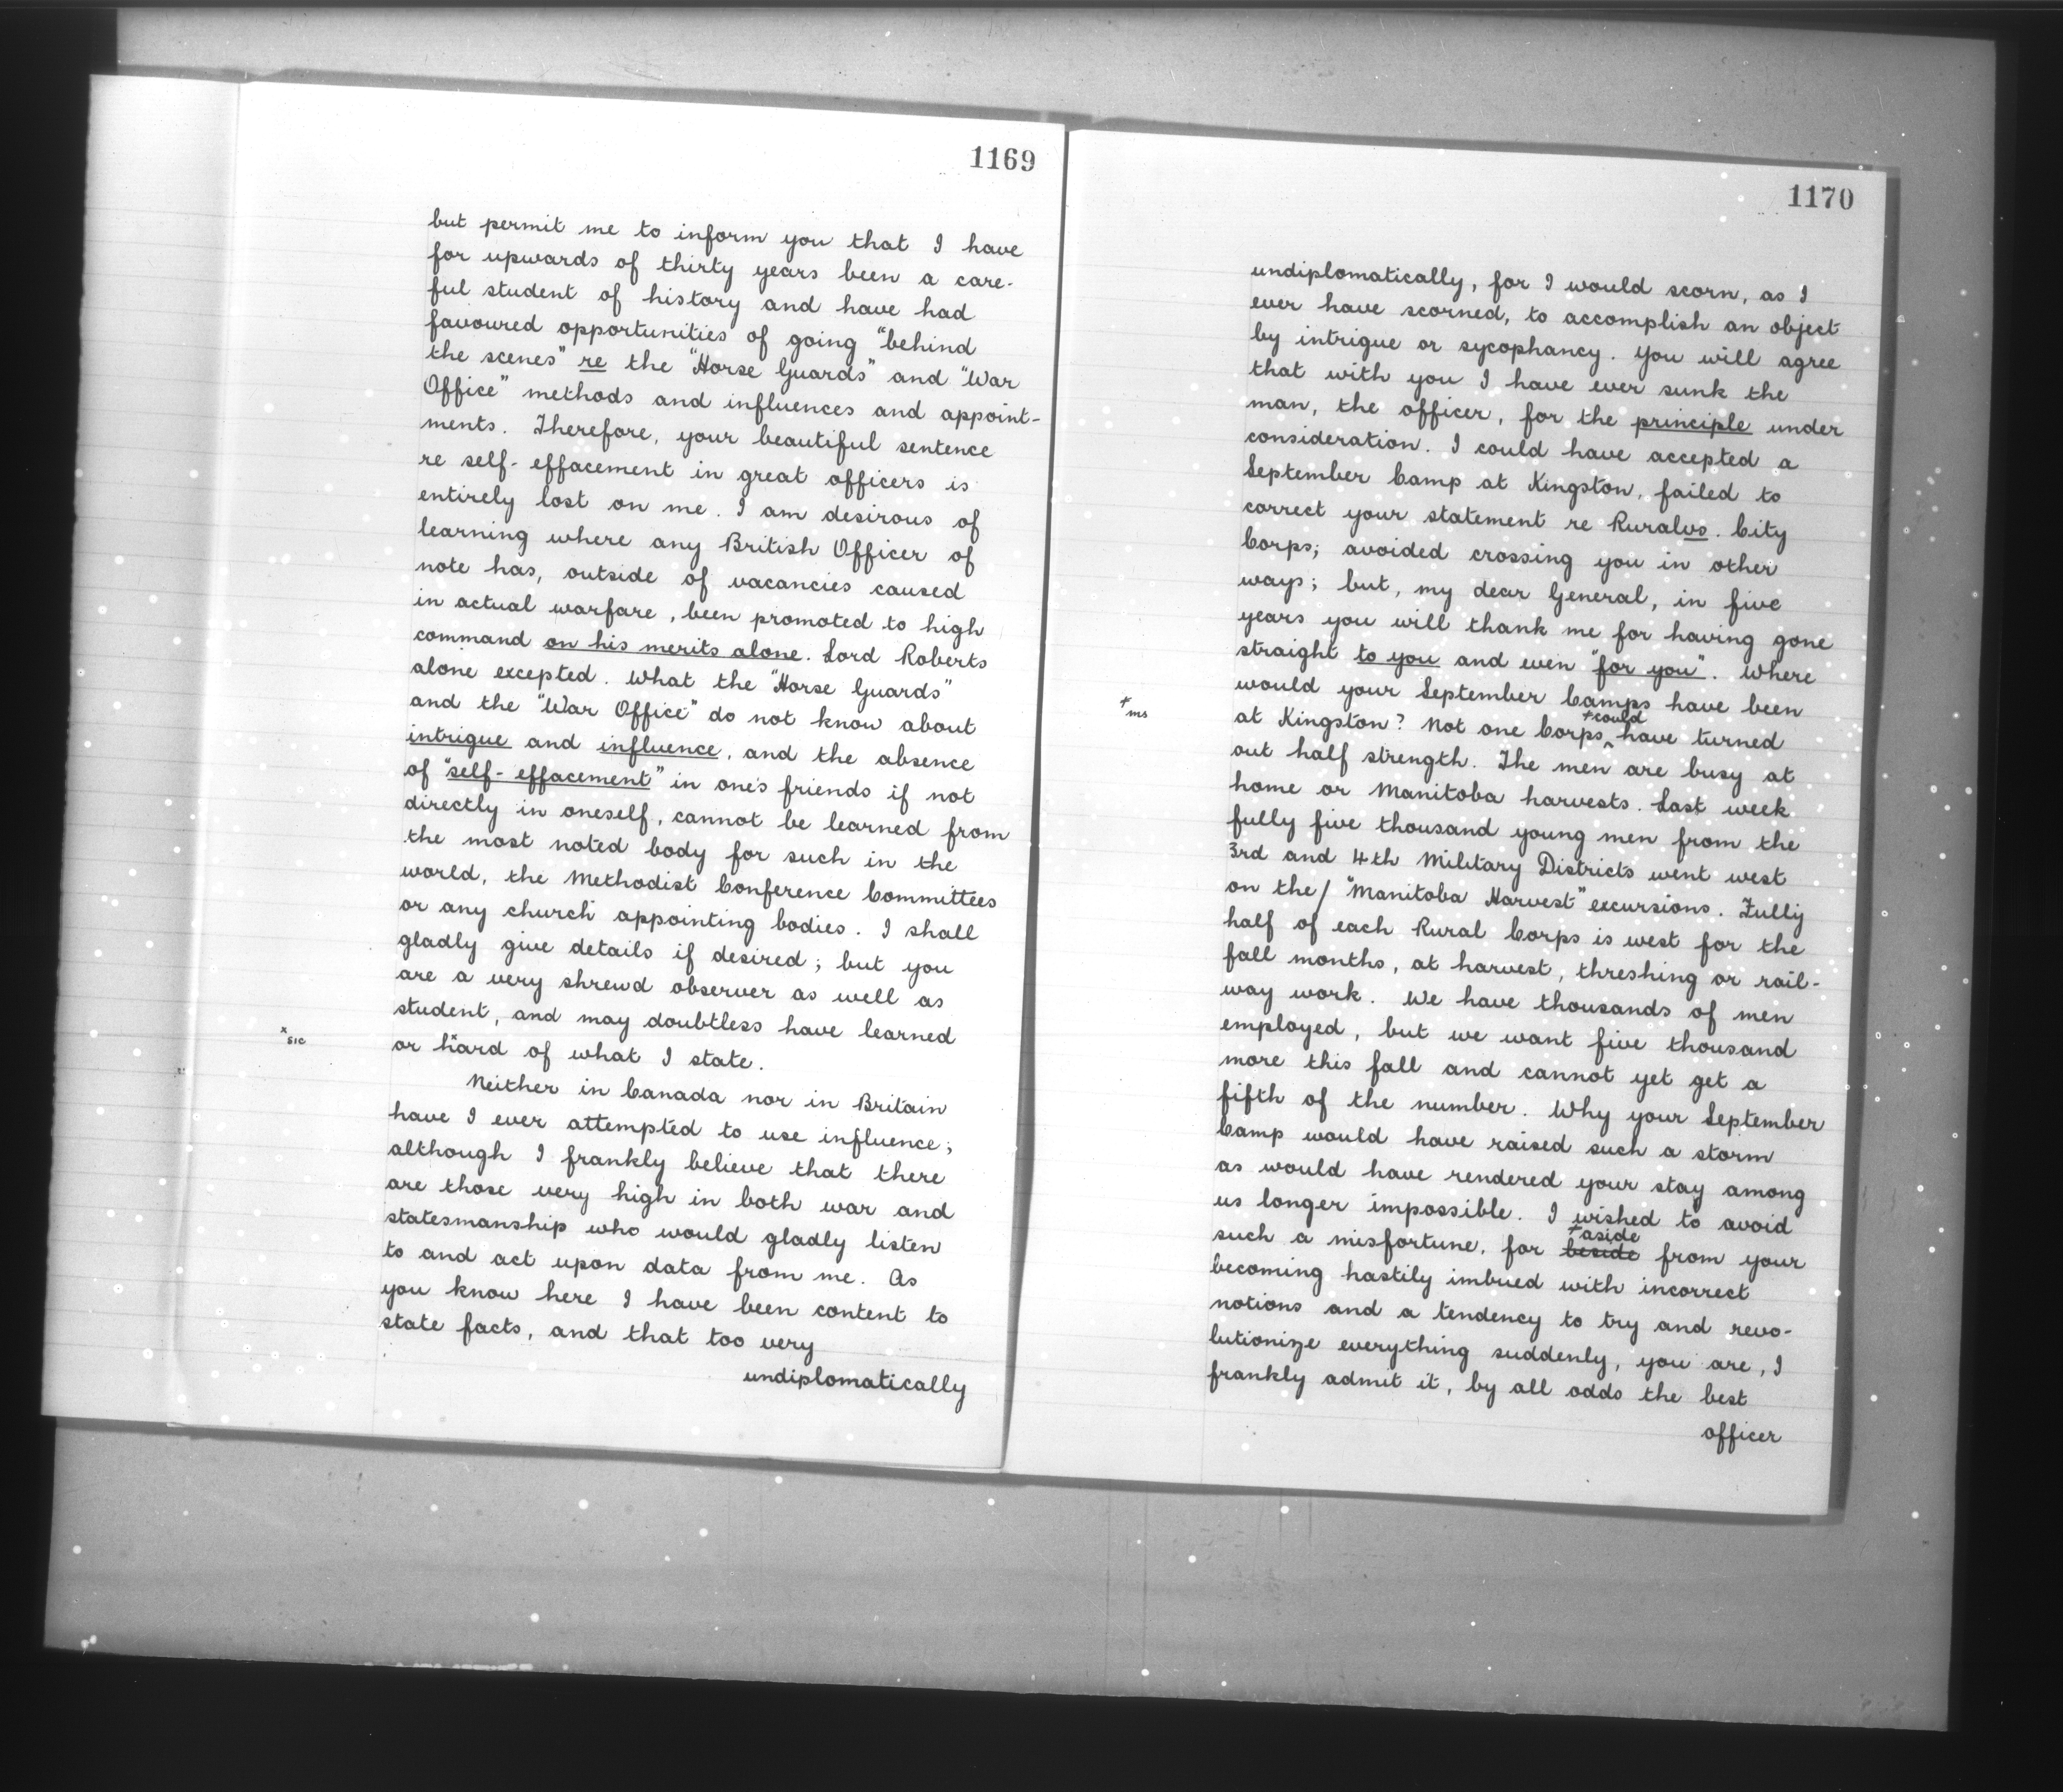 1169
but permit me to inform you that I have
for upwards of thirty years been a care-
ful student of history and have had
favoured opportunities of going "behind
the scenes" re the "Horse Guards" and "War
Office" methods and influences and appoint-
ments. Therefore, your beautiful sentence
re self-effacement in great officers is
entirely lost on me. I am desirous of
learning where any British Officer of
note has, outside of vacancies caused
in actual warfare, been promoted to high
command on his merits alone. Lord Roberts
alone excepted. What the "Horse Guards"
and the "War Office" do not know about
intrigue and influence, and the absence
of "self-effacement" in one's friends if not
directly in oneself, cannot be learned from
the most noted body for such in the
world, the Methodist Conference Committees
or any church appointing bodies. I shall
gladly give details if desired; but you
are a very shrewd observer as well as
student, and may doubtless have learned
x sic
or hard of what I state.
Neither in Canada nor in Britain
have I ever attempted to use influence;
although I frankly believe that there
are those very high in both war and
statesmanship who would gladly listen
to and act upon data from me. As
you know here I have been content to
state facts, and that too very
undiplomatically
1170
undiplomatically, for I would scorn, as I
ever have scorned, to accomplish an object
by intrigue or sycophancy. You will agree
that with you I have ever sunk the
man, the officer, for the principle under
consideration. I could have accepted a
September Camp at Kingston, failed to
correct your statement re Rural vs. City
Corps; avoided crossing you in other
ways; but, my dear General, in five
years you will thank me for having gone
straight to you and even "for you". Where
would your September Camps have been
+ ms
+could
at Kingston? Not one Corps ^ have turned
out half strength. The men are busy at
home or Manitoba harvests. Last week
fully five thousand young men from the
3rd and 4th Military Districts went west
on the/ "Manitoba Harvest" excursions. Fully
half of each Rural Corps is west for the
fall months, at harvest, threshing or rail-
way work. We have thousands of men
employed, but we want five thousand
more this fall and cannot yet get a
fifth of the number. Why your September
Camp would have raised such a storm
as would have rendered your stay among
us longer impossible. I wished to avoid
+aside
such a misfortune, for beside from your
becoming hastily imbued with incorrect
notions and a tendency to try and revo-
lutionize everything suddenly, you are, I
frankly admit it, by all odds the best
officer